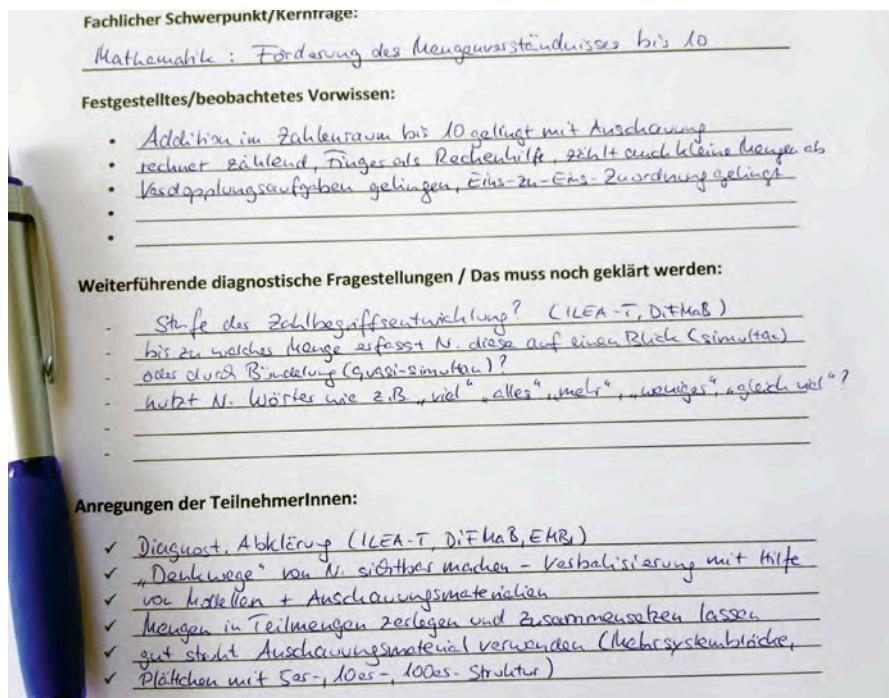 Fachlicher Schwerpunkt/Kernfrage:
Mathematik : Förderung des Mengenverständnisses bis 10
Festgestelltes/beobachtetes Vorwissen:
• Addition im Zahlenraum bis 10 gelingt mit Anschauung
• rechnet zählend, Finger als Rechenhilfe, zählt auch kleine Mengen ab
• Verdopplungsaufgaben gelingen, Eins-zu-Eins-Zuordnung gelingt
•
•
Weiterführende diagnostische Fragestellungen / Das muss noch geklärt werden:
- Stufe der Zahlbegriffsentwicklung? (ILEA-T, DiFMaB)
- bis zu welcher Menge erfasst N. diese auf einen Blick (simultan)
- oder durch Bündelung (quasi-simultan)?
- nutzt N. Wörter wie z.B. „viel“ „alles“, „mehr“, „weniger“, „gleich viel“?
-
-
Anregungen der TeilnehmerInnen:
✓ Diagnost. Abklärung (ILEA-T, DiFMaB, )
✓ „Denkwege“ von N. sichtbar machen – Verbalisierung mit Hilfe
✓ von Modellen + Anschauungsmaterialien
✓ Mengen in Teilmengen zerlegen und zusammensetzen lassen
✓ gut Anschauungsmaterial verwenden (Mehrsystemblöcke,
✓ Plättchen mit 5er-, 10er-, 100er-Struktur)